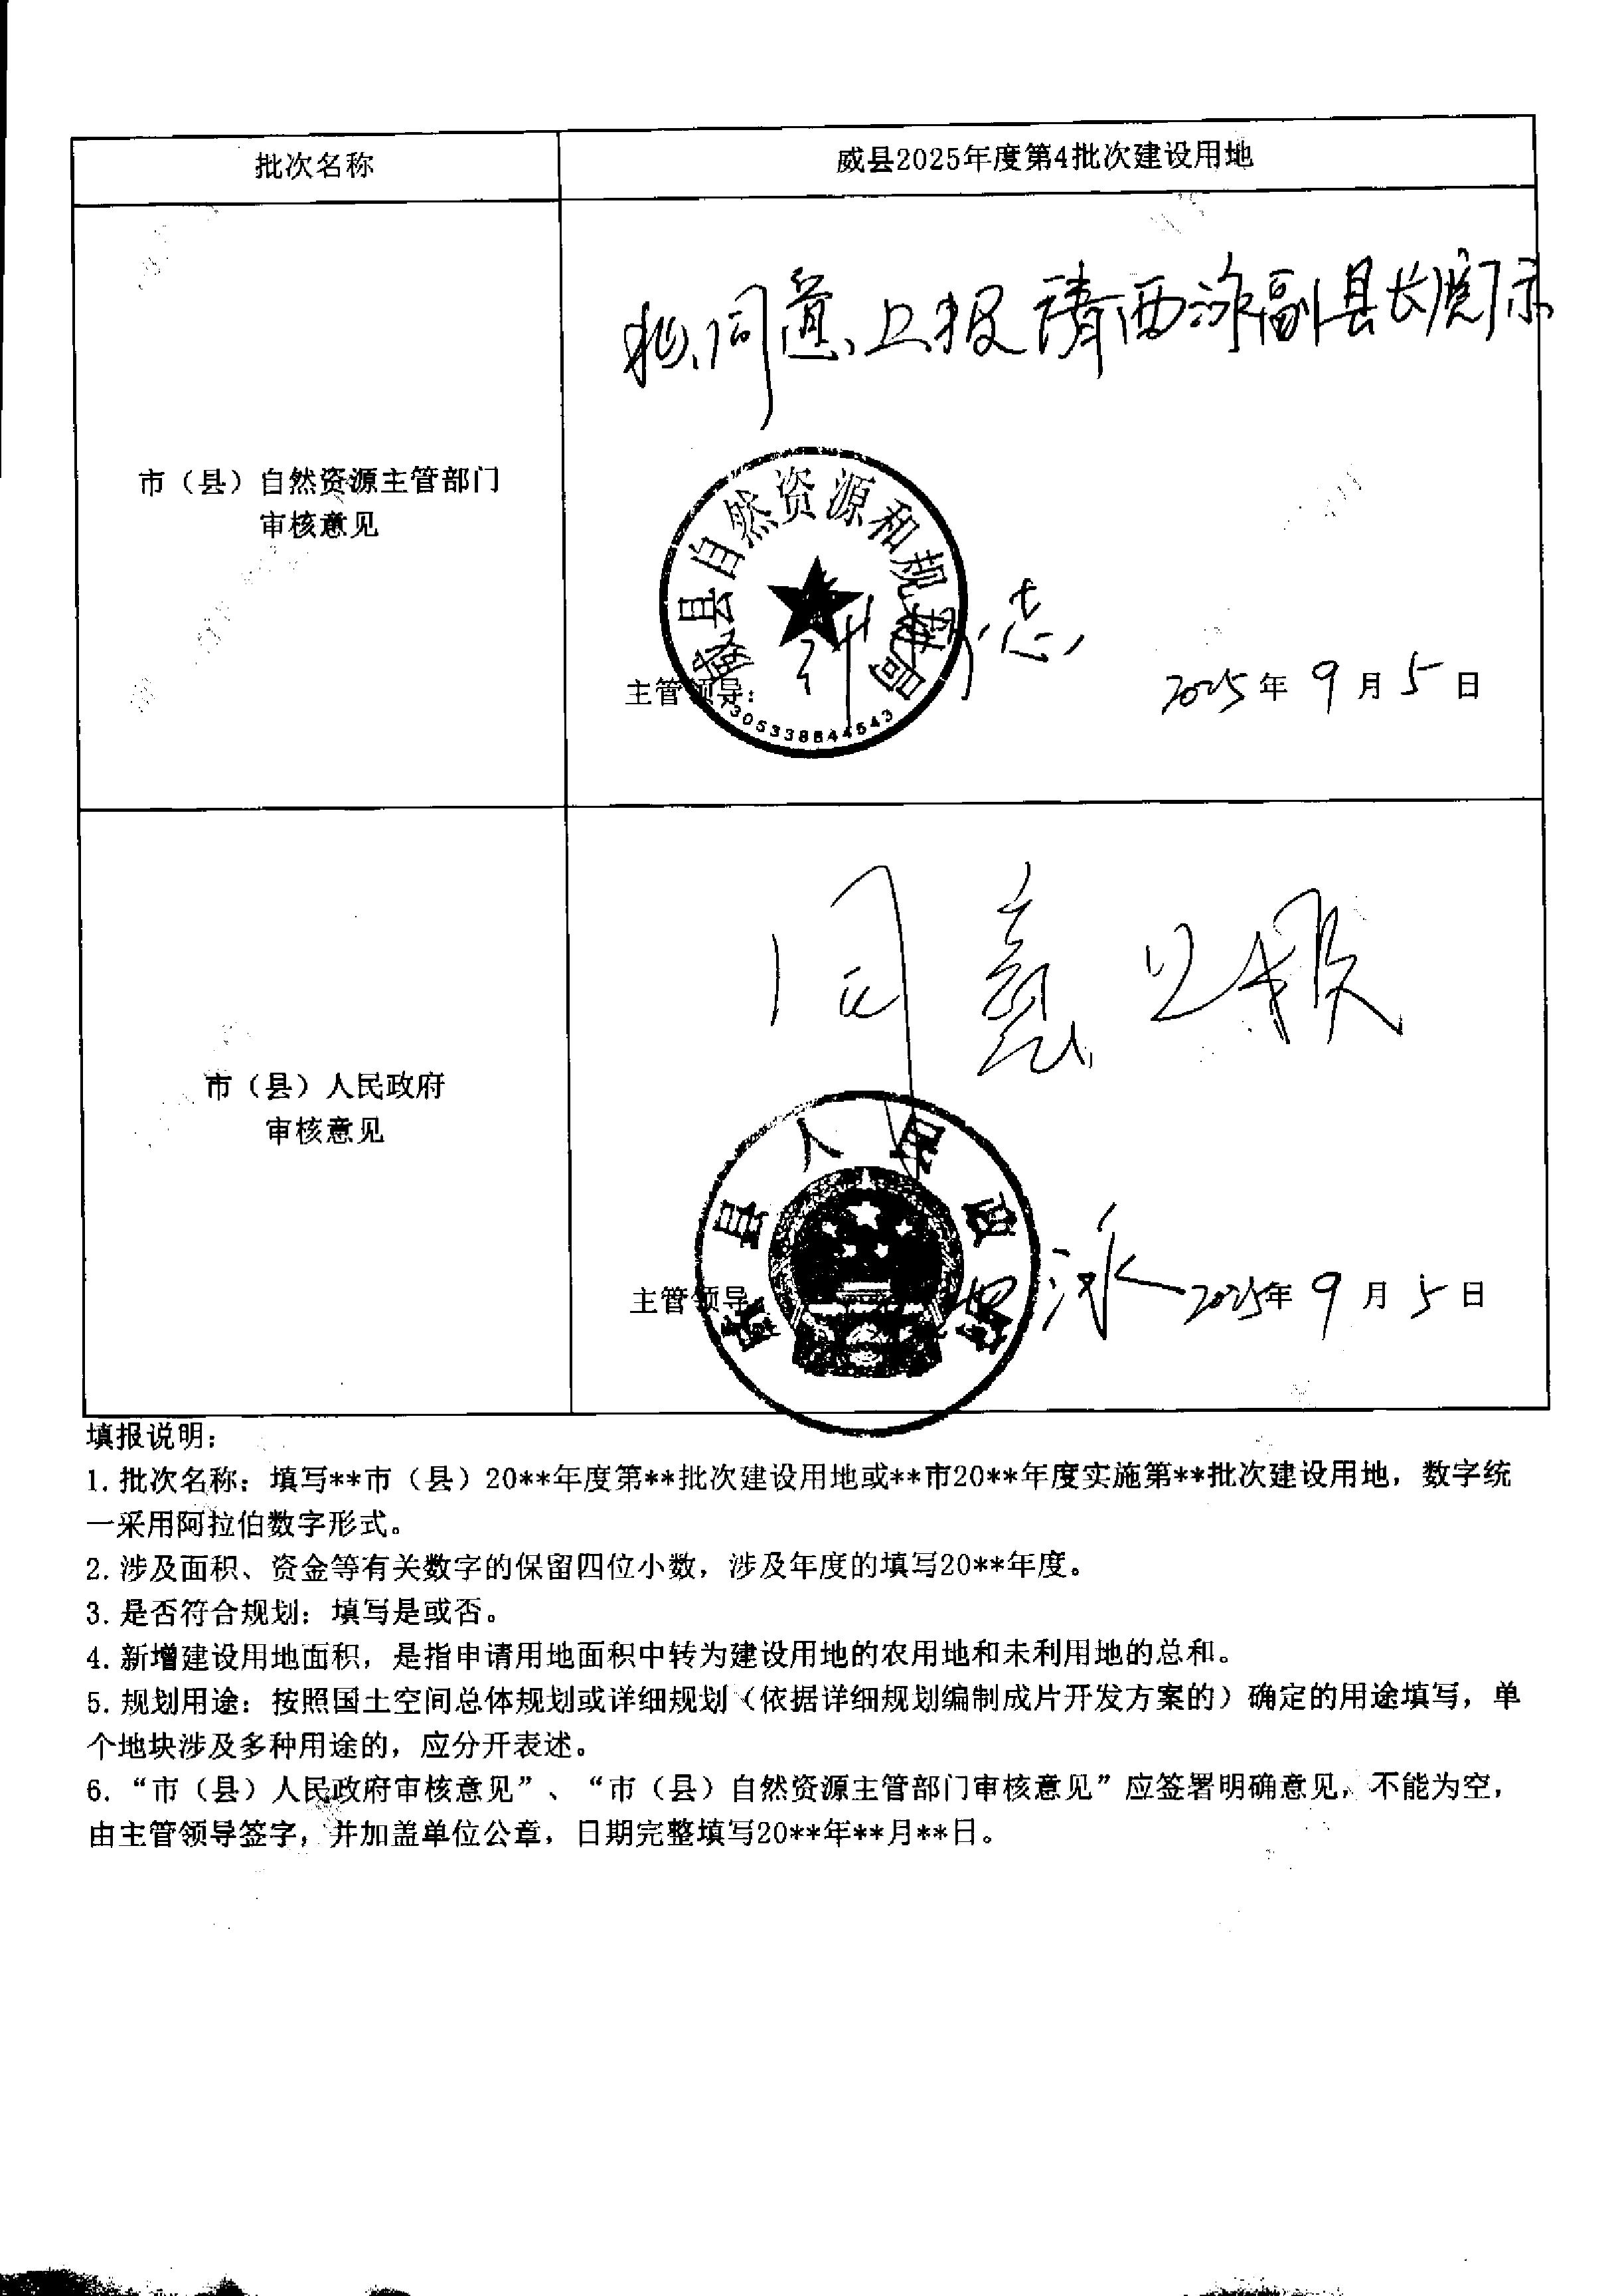 批次名称
威县2025年度第4批次建设用地
拟同意上报 请西泳副县长阅示
市（县）自然资源主管部门
审核意见
威县自然资源和规划局
志
主管领导：
2025年9月5日
1305338644543
同意上报
市（县）人民政府
审核意见
威县人民政府
主管领导
西泳
2025年9月5日
填报说明：
1. 批次名称：填写**市（县）20**年度第**批次建设用地或**市20**年度实施第**批次建设用地，数字统
一采用阿拉伯数字形式。
2. 涉及面积、资金等有关数字的保留四位小数，涉及年度的填写20**年度。
3. 是否符合规划：填写是或否。
4. 新增建设用地面积，是指申请用地面积中转为建设用地的农用地和未利用地的总和。
5. 规划用途：按照国土空间总体规划或详细规划（依据详细规划编制成片开发方案的）确定的用途填写，单
个地块涉及多种用途的，应分开表述。
6. “市（县）人民政府审核意见”、“市（县）自然资源主管部门审核意见”应签署明确意见，不能为空，
由主管领导签字，并加盖单位公章，日期完整填写20**年**月**日。